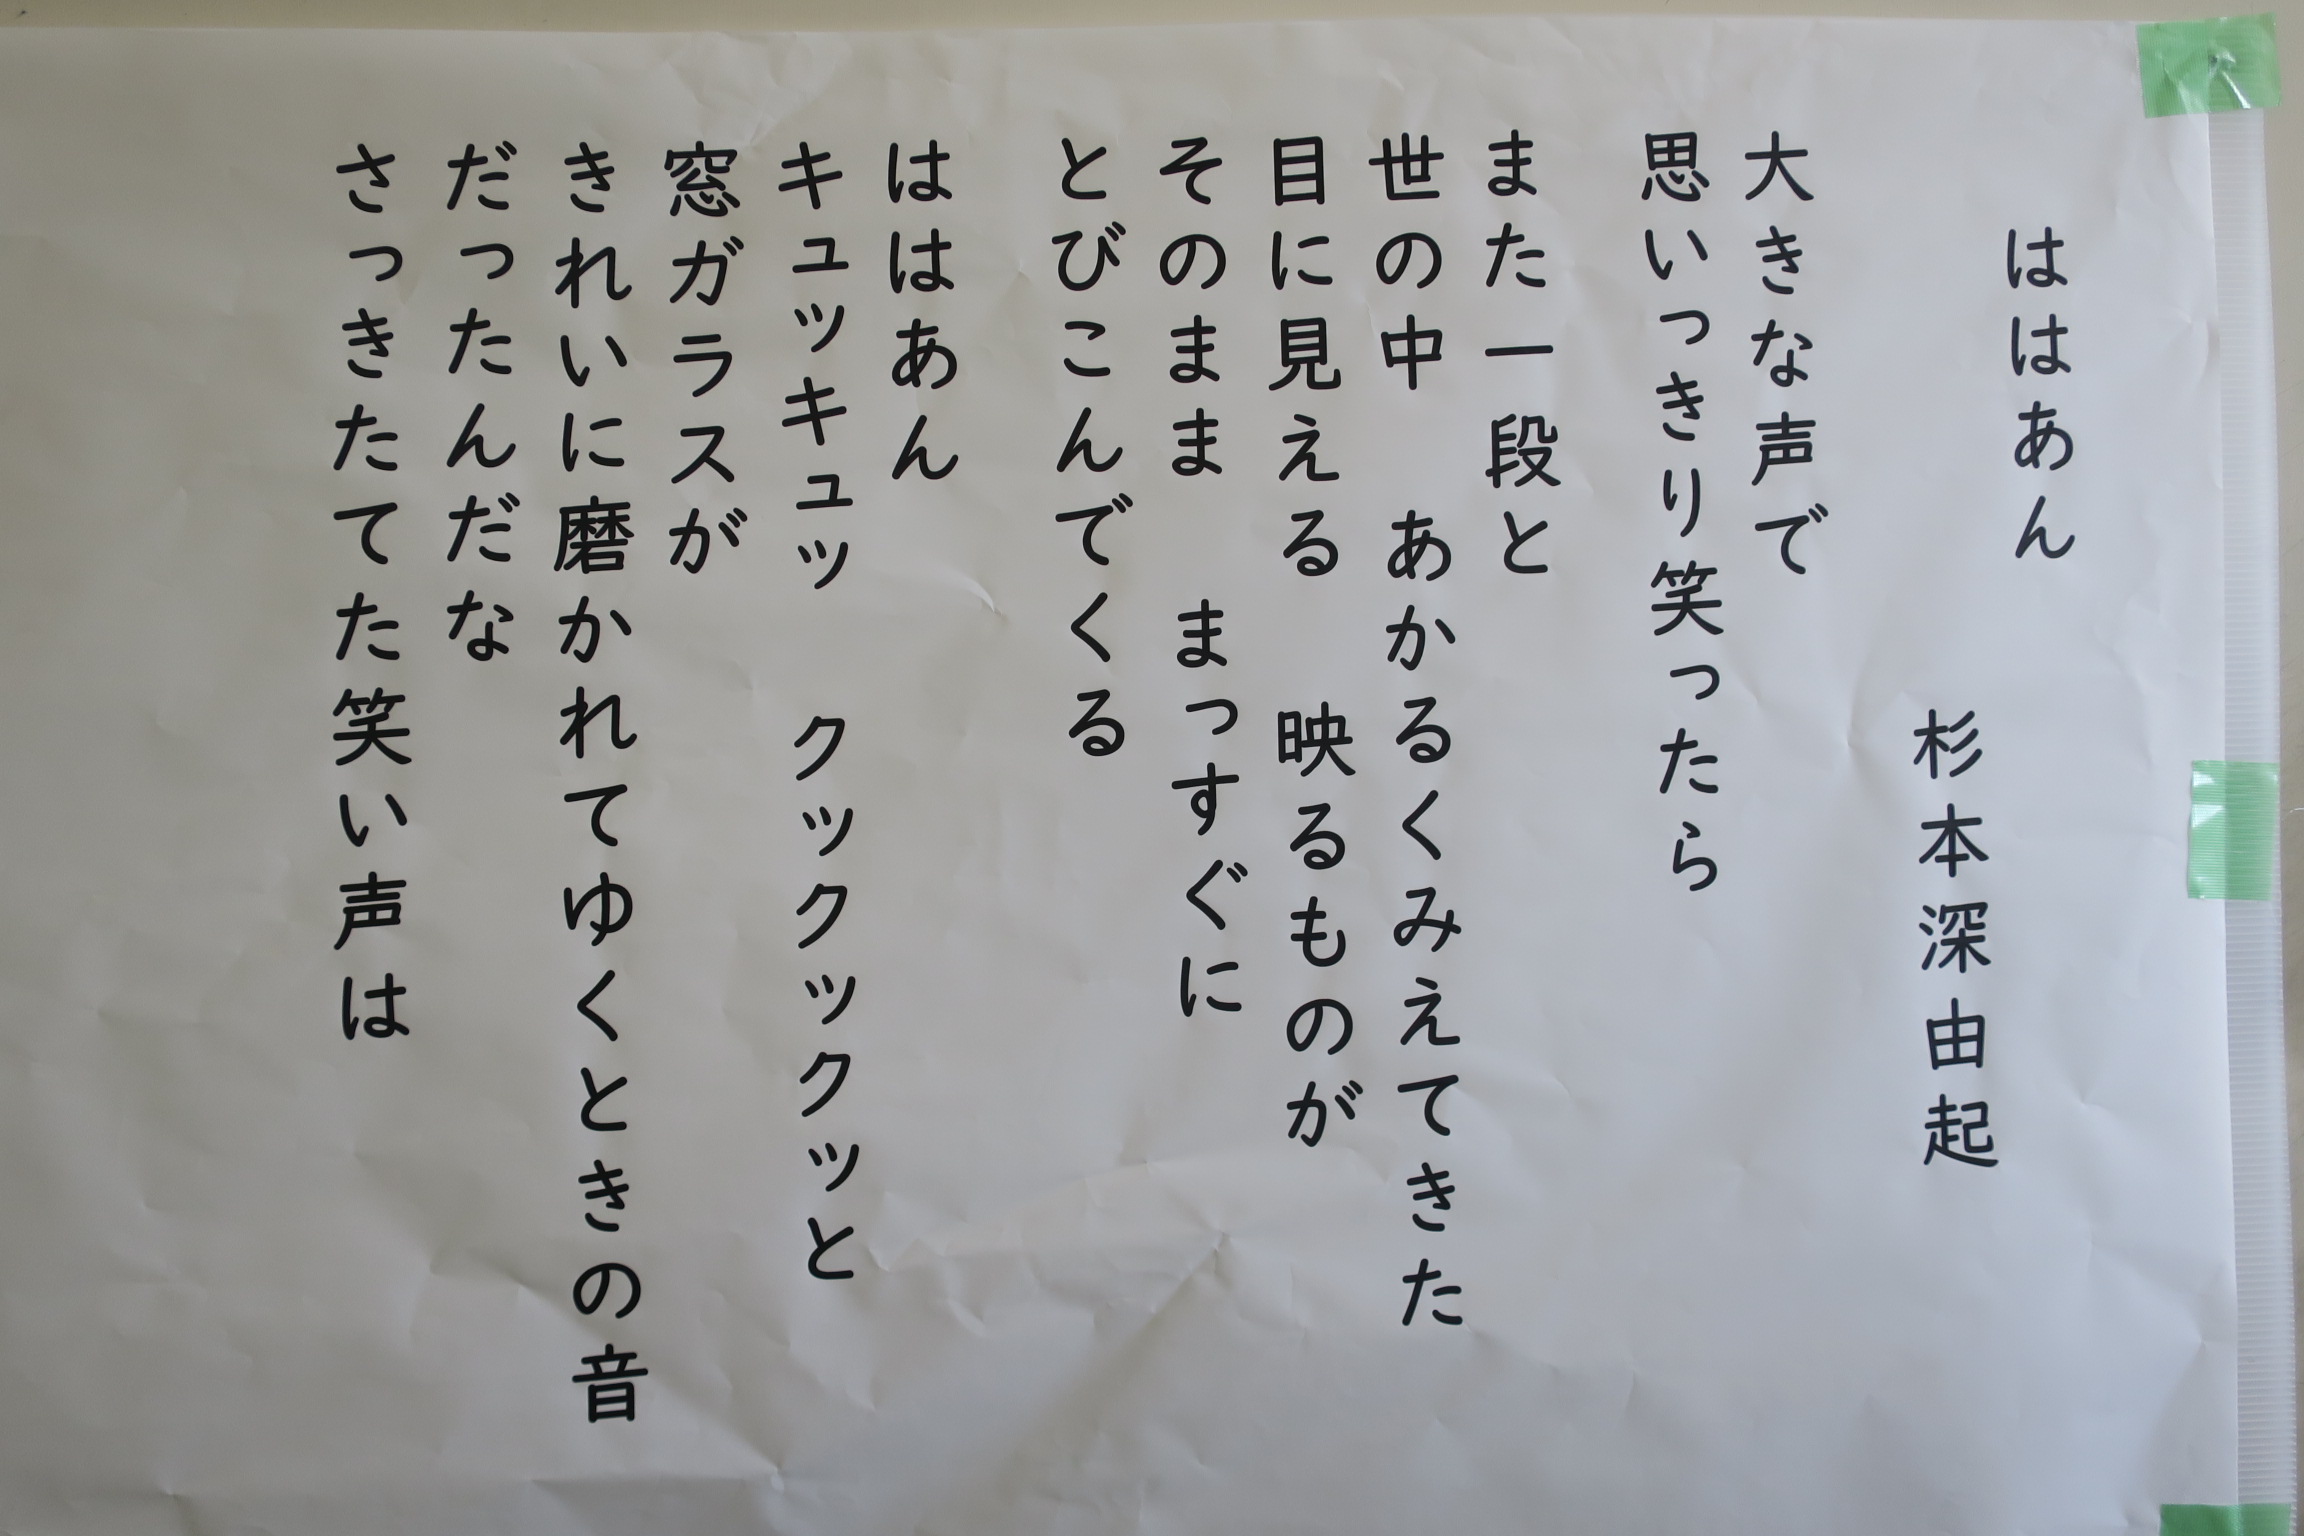 ははあん
杉本深由起
大きな声で
思いっきり笑ったら
また一段と
世の中　あかるくみえてきた
目に見える　映るものが
そのまま　まっすぐに
とびこんでくる
ははあん
キュッキュッ　クックックッと
窓ガラスが
きれいに磨かれてゆくときの音
だったんだな
さっきたてた笑い声は